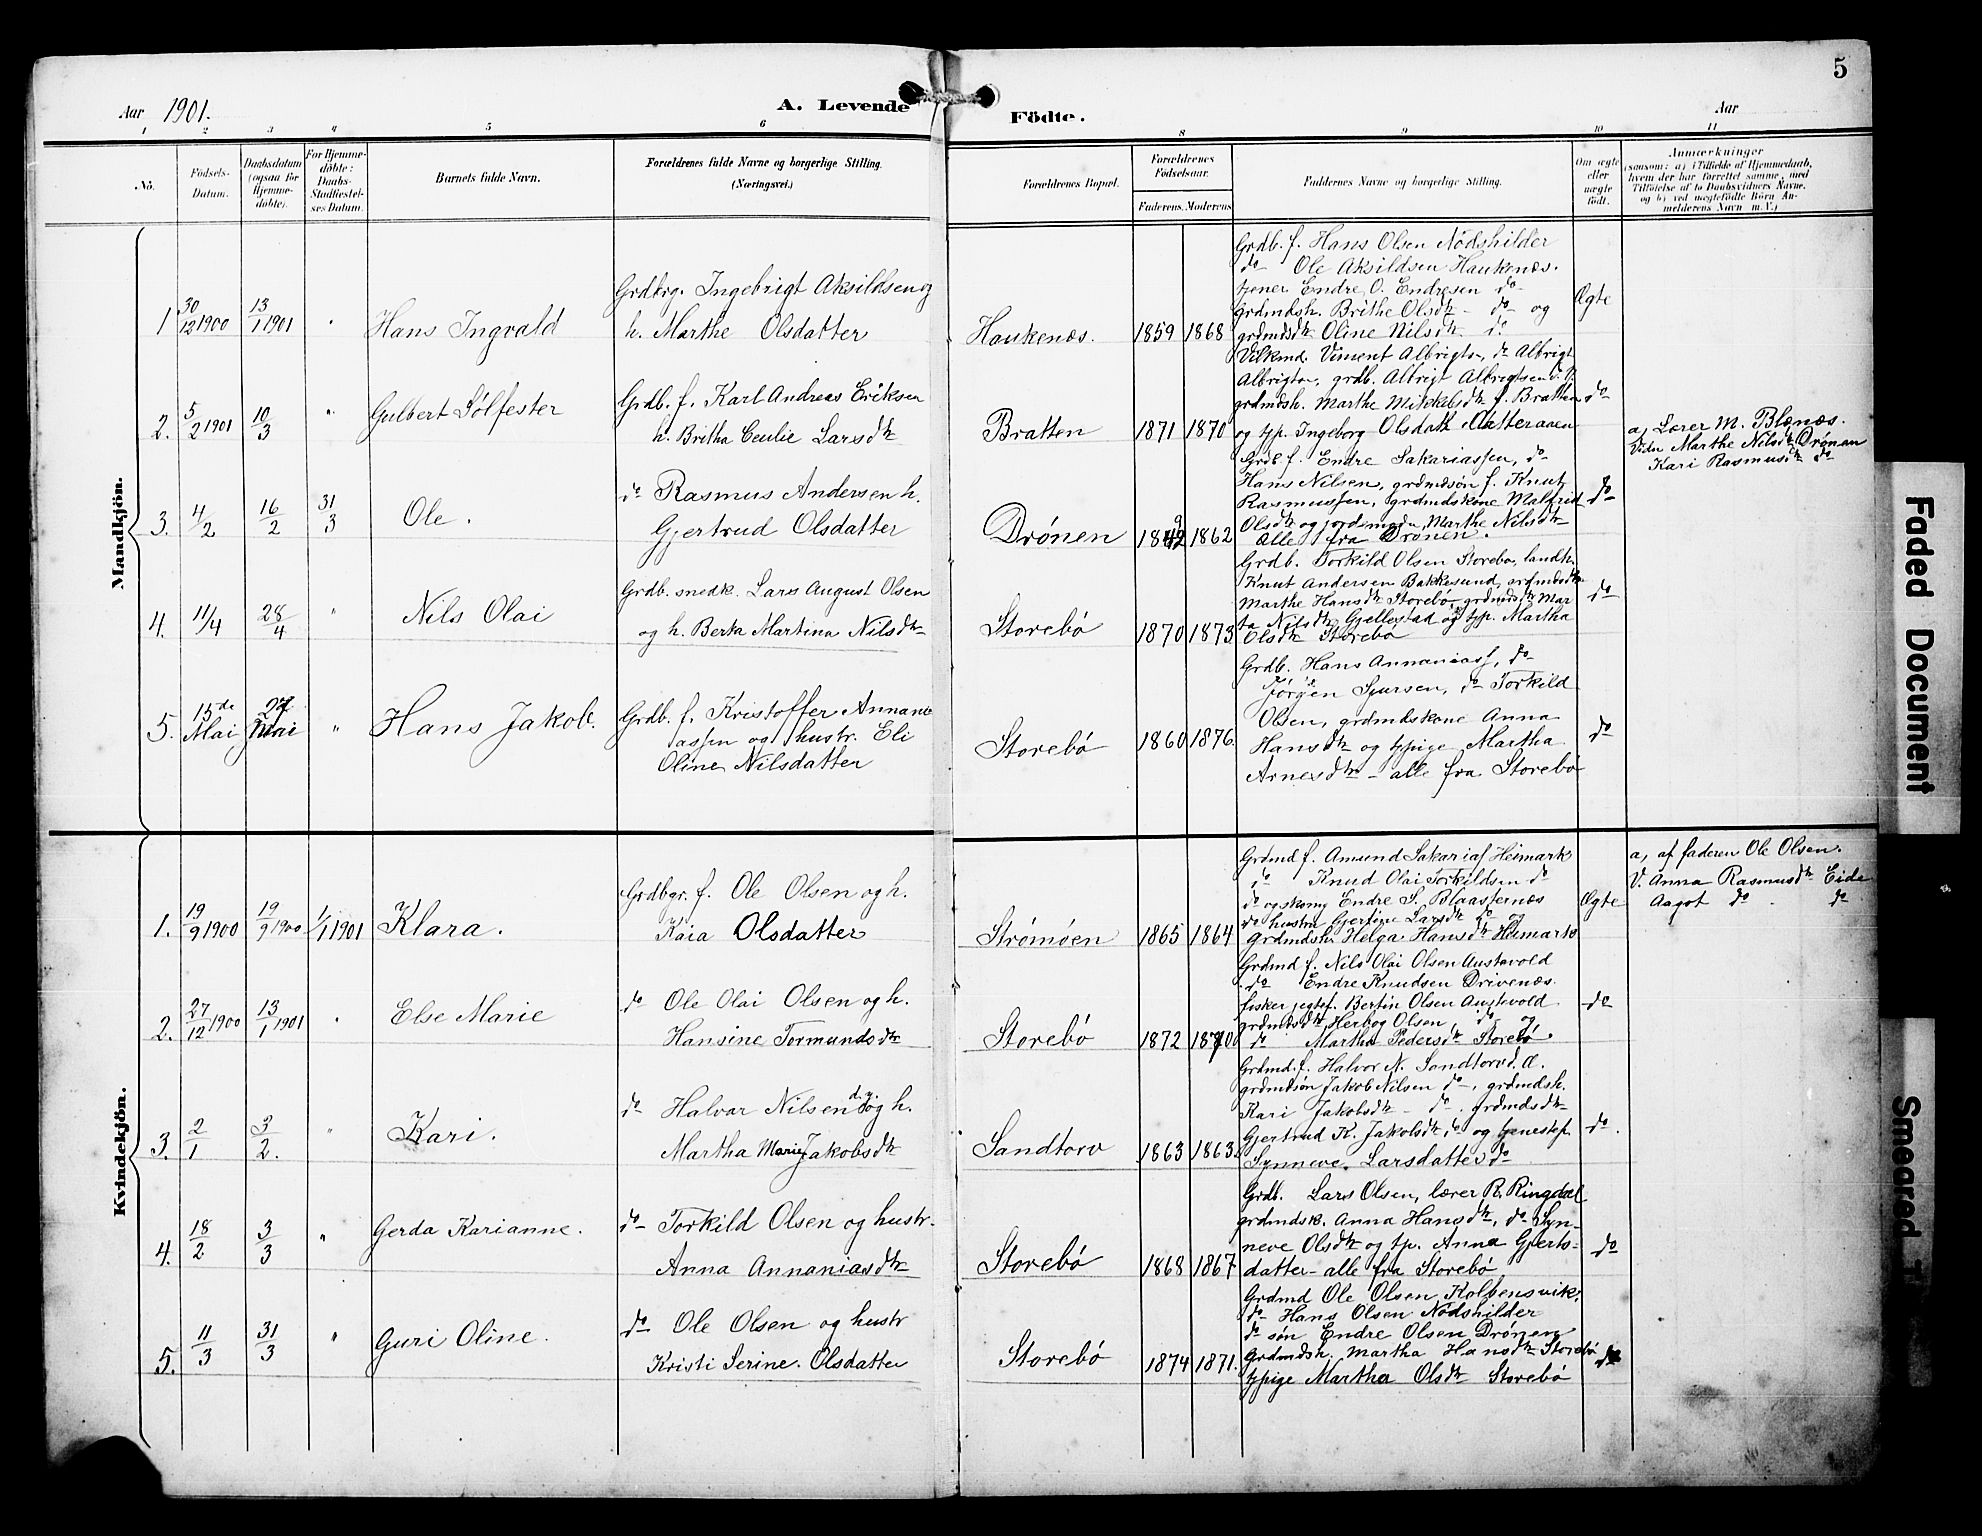 5
Aar 1901.
A. Levende
Födte.
Aar
1 2 3 4 5 6 8 9 10 11
Nö.
Födsels-
Datum.
Daabsdatum
(ogsaa for
Hjemme-
döbte).
For Hjemme-
döbte:
Daabs-
Stadfæstel-
ses Datum.
Barnets fulde Navn.
Forældrenes fulde Navne og borgerlige Stilling.
(Næringsvei.)
Forældrenes Bopæl.
Forældrenes
Födselsaar.
Faderens. Moderens.
Faddernes Navne og borgerlige Stilling.
Om ægte
eller
uægte
födt.
Anmærkninger
(saasom: a) i Tilfælde af Hjemmedaab,
hvem der har forrettet samme, med
Tilföielse af to Daabsvidners Navne,
og b) ved uægtefödte Börn An-
melderens Navn m. V.)
Mandkjön.
1 30/12 1900 13/1 1901 "
Hans Ingvald
Grdbrg. Ingebrigt Aksildsen og
h. Marthe Olsdatter
Haukenæs. 1859 1868
Grdb. f. Hans Olsen Nödshilder
do Ole Aksildsen Haukenæs.
tjener Endre O. Endresen do
grdmdsh. Brithe Olsdtr - do - og
grdmdsdtr Oline Nilsdtr. do
Ægte
2. 5/2 1901 10/3 "
Gulbert Sölfester
Grdb. f. Karl Andreas Eriksen
h. Britha Cecilie Larsdtr
Bratten 1871 1870
Vilkmd. Vincent Albrigts-, do Albrigt
Albrigtsn, grdb. Albrigt Albrigtsen
grdmdsh. Marthe Mikkelsdtr f. Bratten
og tjp. Ingeborg Olsdatt
do
a, Lærer M. Blænæs.
Vidn Marthe Nilsdtr Drönen
Kari Rasmusdtr do
3. 4/2 16/2 31/3
Ole.
do Rasmus Andersen h.
Gjertrud Olsdatter
Drönen 1862
Grdb f. Endre Sakariassen, do
Hans Nilsen, grdmdsön f. Knut
Rasmussen, grdmdskone Malfrid
Olsdtr og jordemodr Marthe Nilsdtr
Alle fra Drönen.
do
4. 11/4 28/4 "
Nils Olai
Grdb. snedk. Lars August Olsen
og h. Berta Martina Nilsdtr
Storebö 1870 1873
Grdb. Torkild Olsen Storebö, landh.
Knut Andersen Bakkesund, grdmdsdtr
Marthe Hansdtr Storebö, grdmdsdtr Mar
ta Nilsdtr Gjellestad og tjp. Martha
Olsdtr Storebö
do
5. 15de Mai 27 Mai "
Hans Jakob.
Grdb. f. Kristoffer Annani
assen og hustr. Eli
Oline Nilsdatter
Storebö 1860 1876.
Grdb. Hans Annaniass, do
Jörgen Sjursen, do Torkild
Olsen, grdmdskone Anna
Hansdtr og tjpige Martha
Arnesdtr - alle fra Storebö
do
Kvindekjön.
1. 19/9 1900 19/9 1900 1/1 1901
Klara.
Grdbgr. f. Ole Olsen og h.
Kaia Olsdatter
Strömöen 1865 1864
Grdmd f. Amund Sakarias Heimark
do Knud Olai Torkildsen do
do og skomg Endre S. Blaasternæs
do hustru Gjertine Larsdtr do og
grdmdsh. Helga Hansdtr Heimark
Ægte
a, af faderen Ole Olsen.
V. Anna Rasmusdtr Eide
Aagot do do
2. 27/12 1900 13/1 1901 "
Else Marie
do Ole Olai Olsen og h.
Hansine Tormundsdtr
Storebö 1872 1870
Grdmd f. Nils Olai Olsen Austevold
do Endre Knudsen Drivenæs.
fisker jegtsf. Bertin Olsen Austevold
grdmdsdtr Herbog Olsen do og
do Martha Pedersdtr Storebö.
do
3. 2/1 3/2. "
Kari.
do Halvar Nilsen d.y. og h.
Martha Marie Jakobsdtr
Sandtorv 1863 1863.
Grdmd. f. Halvor N. Sandtorv d. æ.
grdmdsön Jakob Nilsen do -, grdmdsh.
Kari Jakobsdtr - do. grdmdsdtr
Gjertrud K. Jakobsdtr do og tjenestep.
Synneve Larsdatter do
do.
4. 18/2 3/3 "
Gerda Karianne.
do Torkild Olsen og hustr.
Anna Annaniasdtr
Storebö 1868 1867
Grdb. Lars Olsen, lærer R. Ringdal
grdmdsk. Anna Hansdtr, do Syn-
neve Olsdtr og tjp. Anna Gjerts-
datter - alle fra Storebö
do
5. 11/3 31/3 "
Guri Oline.
do Ole Olsen og hustr
Kristi Serine. Olsdatter
Storebö 1874 1871.
Grdmd Ole Olsen Kolbensvik,
do Hans Olsen Nödshilder
do sön Endre Olsen Drönen
Grdmdsh. Martha Hansdtr Storebö
tjpige Martha Olsdtr Storebö
do
Faded Document
Smeared